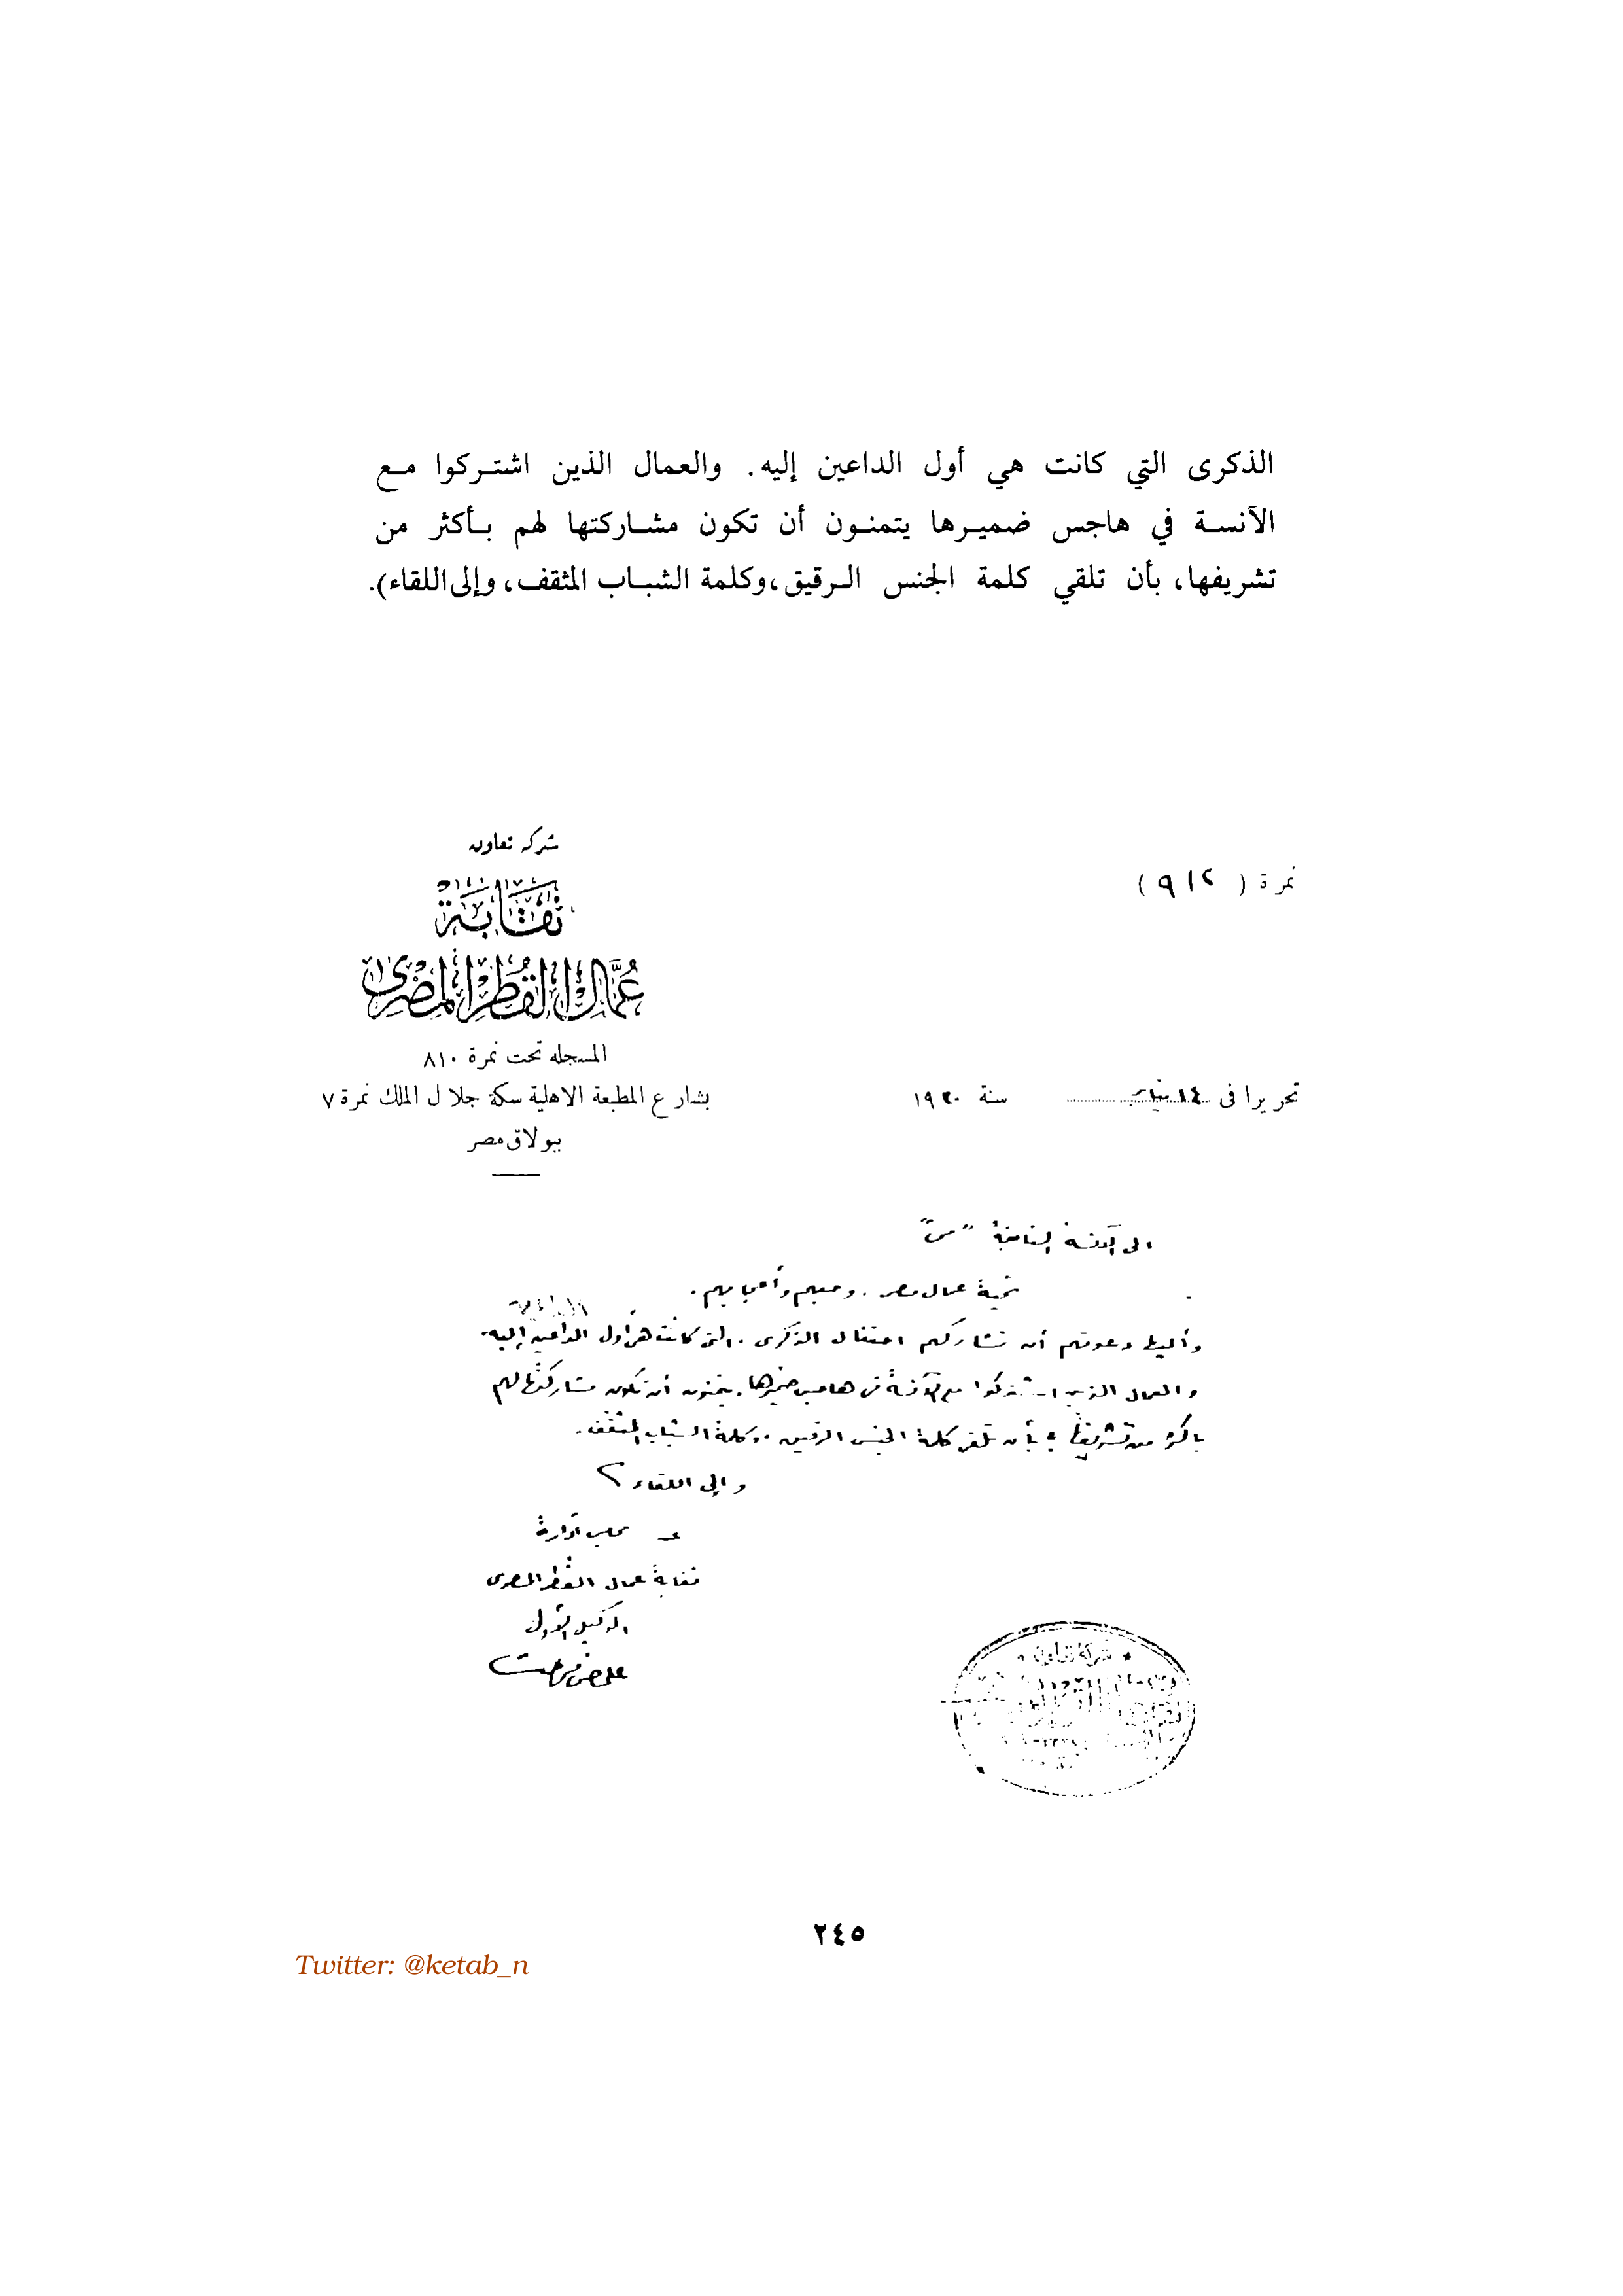 الذكرى التي كانت هي أول الداعين إليه. والعمال الذين اشتركوا مع
الآنسة في هاجس ضميرها يتمنون أن تكون مشاركتها لهم بأكثر من
تشريفها، بأن تلقي كلمة الجنس الرقيق، وكلمة الشباب المثقف، وإلى اللقاء).
شركه تعاون
نقابة
عمال القطر المصرى
المسجله تحت نمرة ٨١٠
بشارع المطبعة الاهلية سكة جلال الملك نمرة ٧
ببولاق مصر
نمرة ( ٩١٢ )
تحريرا فى ١٤ يناير سنة ١٩٢٠
الى الآنسة النابغة "مى"
تحية عمال مصر. وحبهم وأعجابهم.
وأليها دعوتهم أن تشاركهم احتفال الذكرى. التى كانت هى أول الداعين إليه.
والعمال الذين اشتركوا مع الآنسة فى هاجس ضميرها. يتمنون أن تكون مشاركتها لهم
بأكثر من تشريفها بأن تلقى كلمة الجنس الرقيق. وكلمة الشباب المثقف.
وإلى اللقاء
عن مجلس أدارة
نقابة عمال القطر المصرى
الوكيل الأول
شركة تعاون
٢٤٥
Twitter: @ketab_n